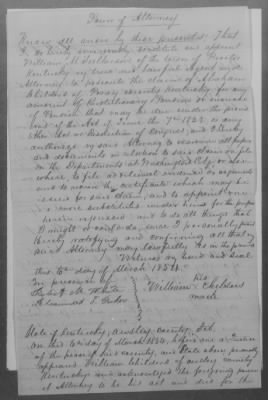 Power of Attorney
Know all men by these presents; That
I do hereby constitute and appoint
William M of the town of
Kentucky my true and lawful Agent and
Attorney to prosecute the claim of Abraham
Childers of County Kentucky for any
amount of Revolutionary Pension or increase
of Pension that may be due under the provis
ions of the Act of June the 7th 1832, or any
other Act or Resolution of Congress, and I hereby
authorize my said Attorney to examine all papers
and documents in relation to said claim on file
in the Departments at Washington City or else
where, to file additional evidence or arguments
and to receive the certificate which may be
issued for said claim, and to appoint one
or more substitutes under him for the purposes
herein expressed and to do all things that
I might or could do, were I personally present
hereby ratifying and confirming all that my
said Attorney may lawfully do in the premises
Witness my hand and Seal
this 6th day of March 1854.
In presence of his
White William Childers
Alexander mark
State of Kentucky, County, Sct.
On this 6th day of March 1854, before me a Justice
of the peace of said county, and State above personally
appeared William Childers of county
Kentucky and acknowledged the foregoing power
of Attorney to be his act and deed for the